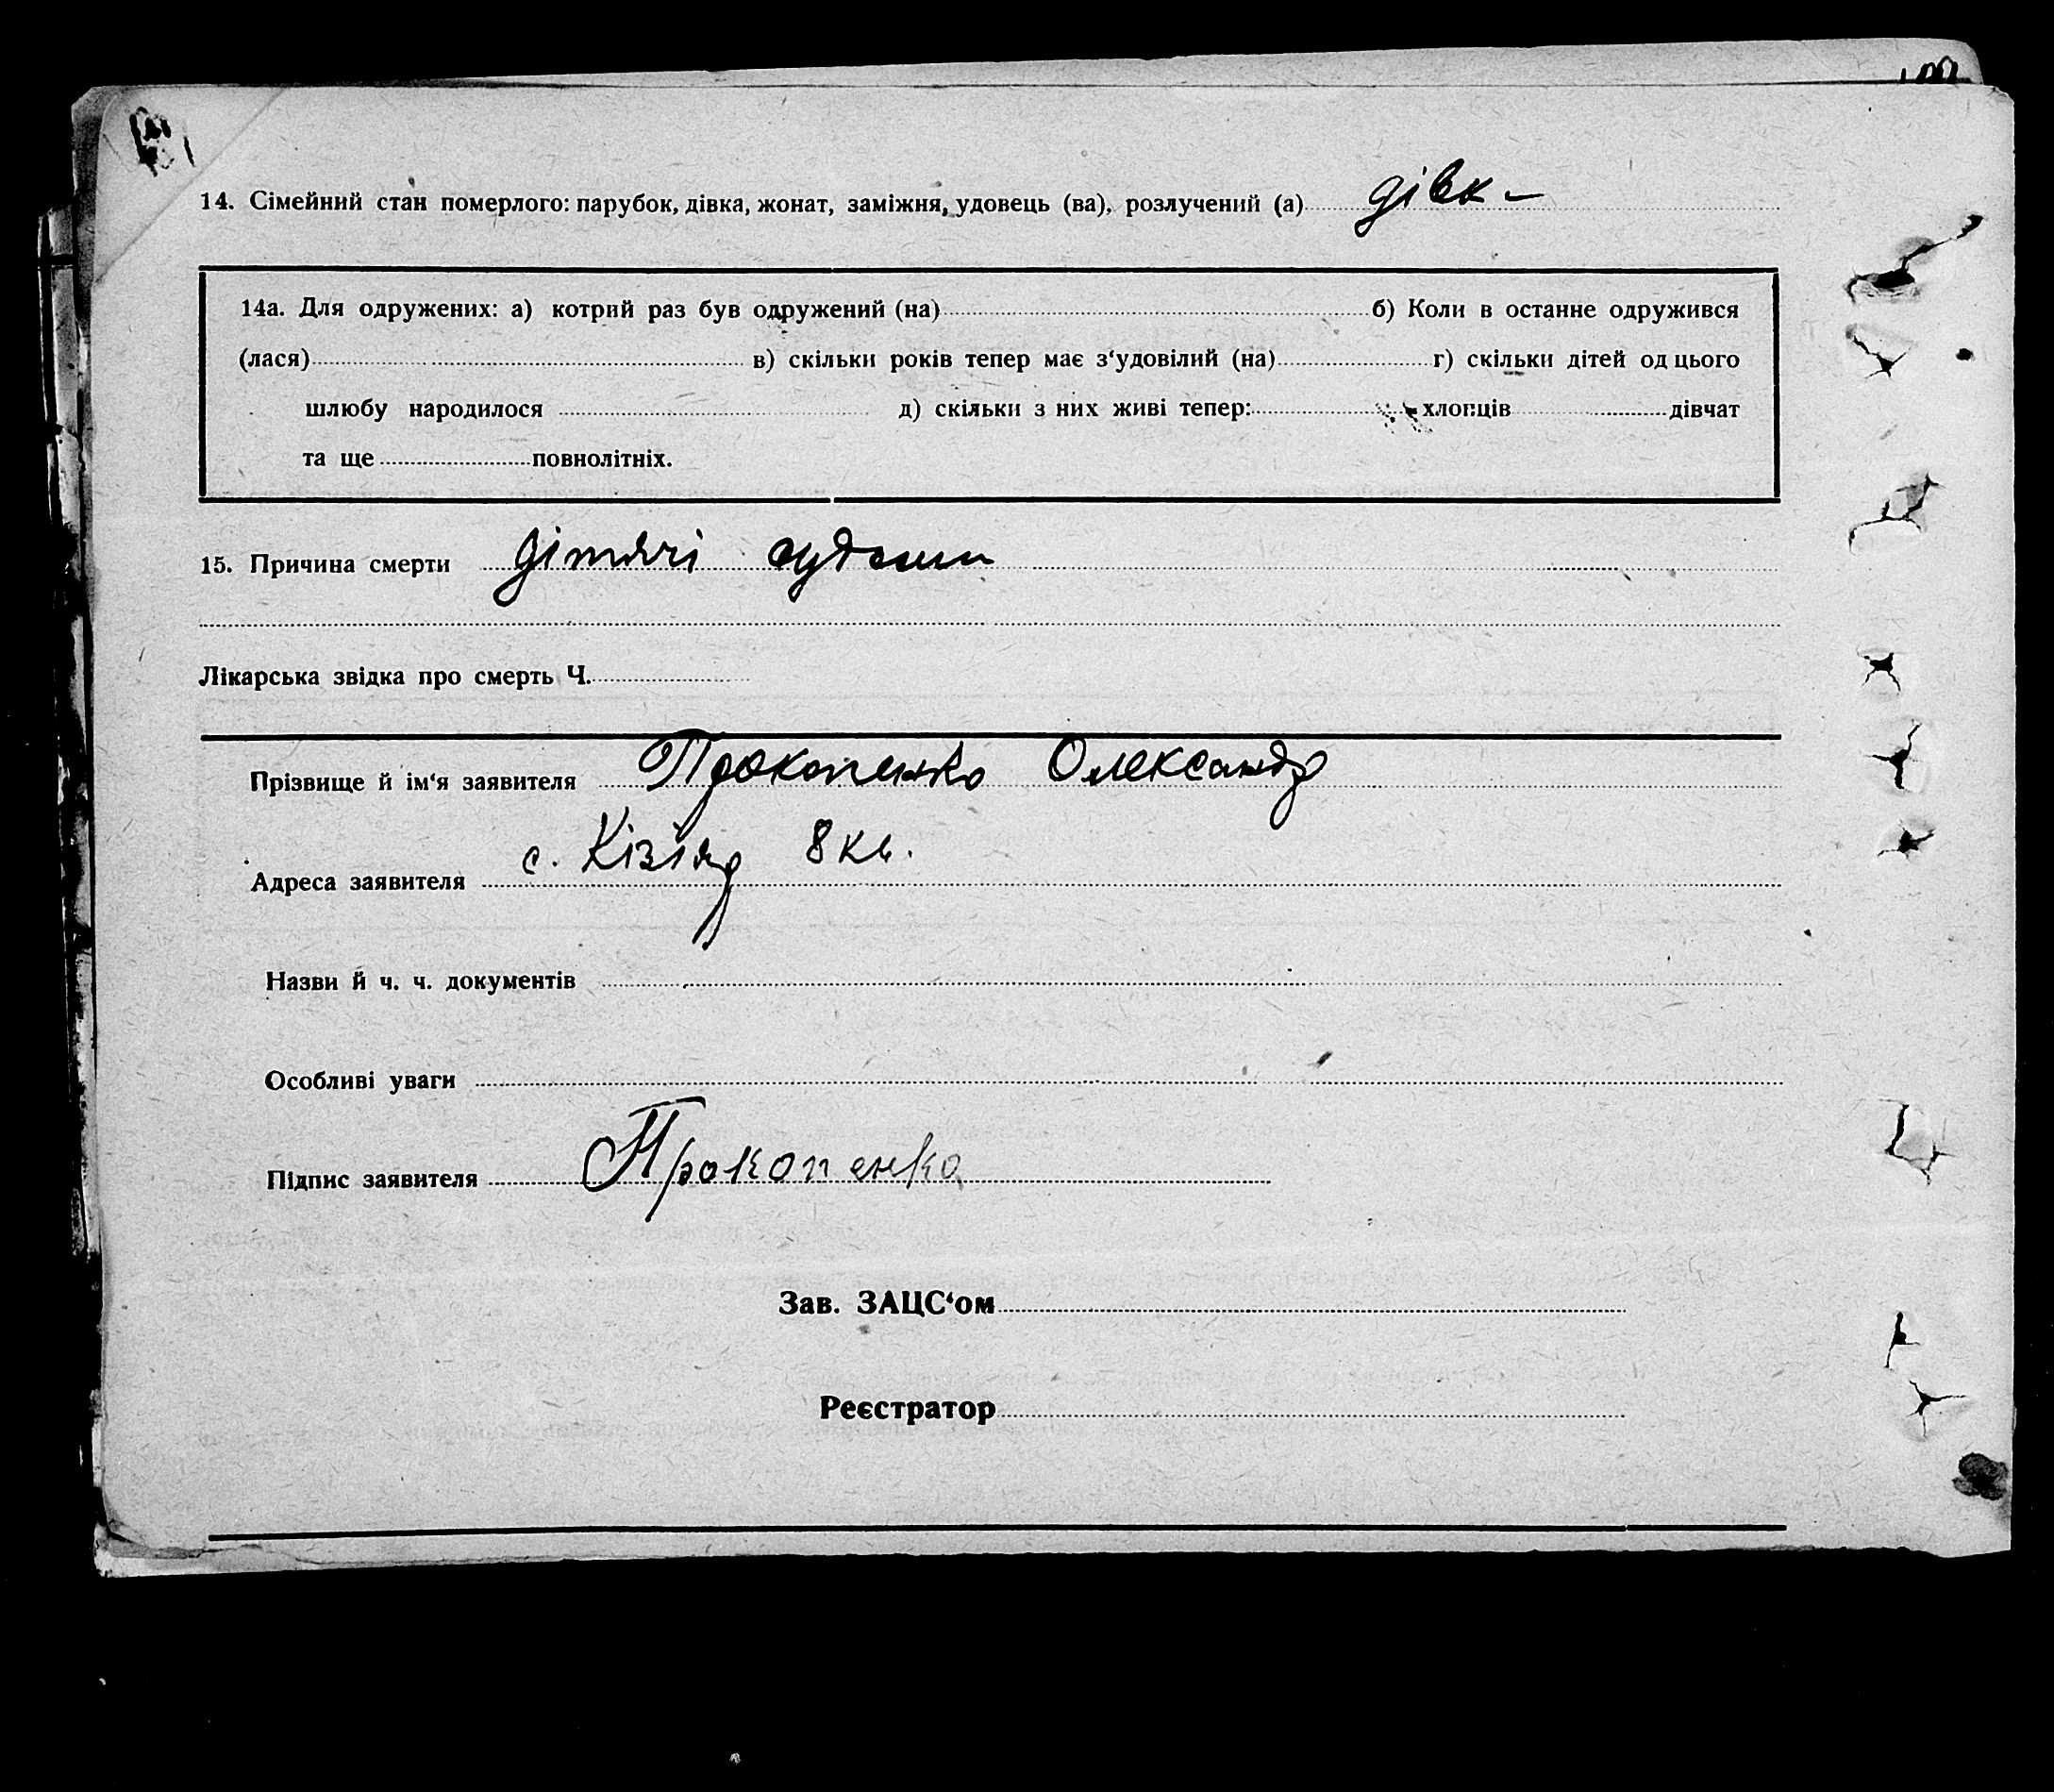 14. Сімейний стан померлого: парубок, дівка, жонат, заміжня, удовець (ва), розлучений (а) дівк –
14а. Для одружених: а) котрий раз був одружений (на) б) Коли в останне одружився
(лася) в) скільки років тепер має з‘удовілий (на) г) скільки дітей од цього
шлюбу народилося д) скільки з них живі тепер: хлопців дівчат
та ще повнолітніх.
15. Причина смерти дітячі
Лікарська звідка про смерть Ч.
Прізвище й ім‘я заявителя Прокопенко Олександр
Адреса заявителя с. Кізіяр 8 кв.
Назви й ч. ч. документів
Особливі уваги
Підпис заявителя Прокопенко
Зав. ЗАЦС‘ом
Реєстратор